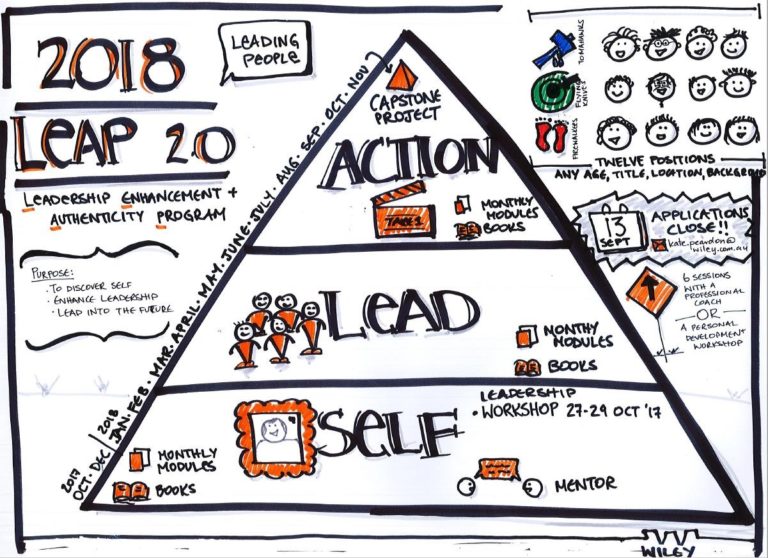 2018
LEAP 2.0
LEADERSHIP ENHANCEMENT +
AUTHENTICITY PROGRAM
PURPOSE:
· TO DISCOVER SELF
· ENHANCE LEADERSHIP
· LEAD INTO THE FUTURE
LEADING
PEOPLE
2017
OCT · DEC
2018
JAN · FEB · MAR · APRIL · MAY · JUNE · JULY · AUG · SEP · OCT · NOV
CAPSTONE
PROJECT
ACTION
TAKE 1
MONTHLY
MODULES
BOOKS
LEAD
MONTHLY
MODULES
BOOKS
SELF
LEADERSHIP
· WORKSHOP 27-29 OCT '17
MONTHLY
MODULES
BOOKS
MENTOR
TOMAHAWKS
FLYING
KNIVES
FIREWALKERS
TWELVE POSITIONS
ANY AGE, TITLE, LOCATION, BACKGROUND
13
SEPT
APPLICATIONS
CLOSE!!
wiley.com.au
6 SESSIONS
WITH A
PROFESSIONAL
COACH
OR
A PERSONAL
DEVELOPMENT
WORKSHOP
WILEY